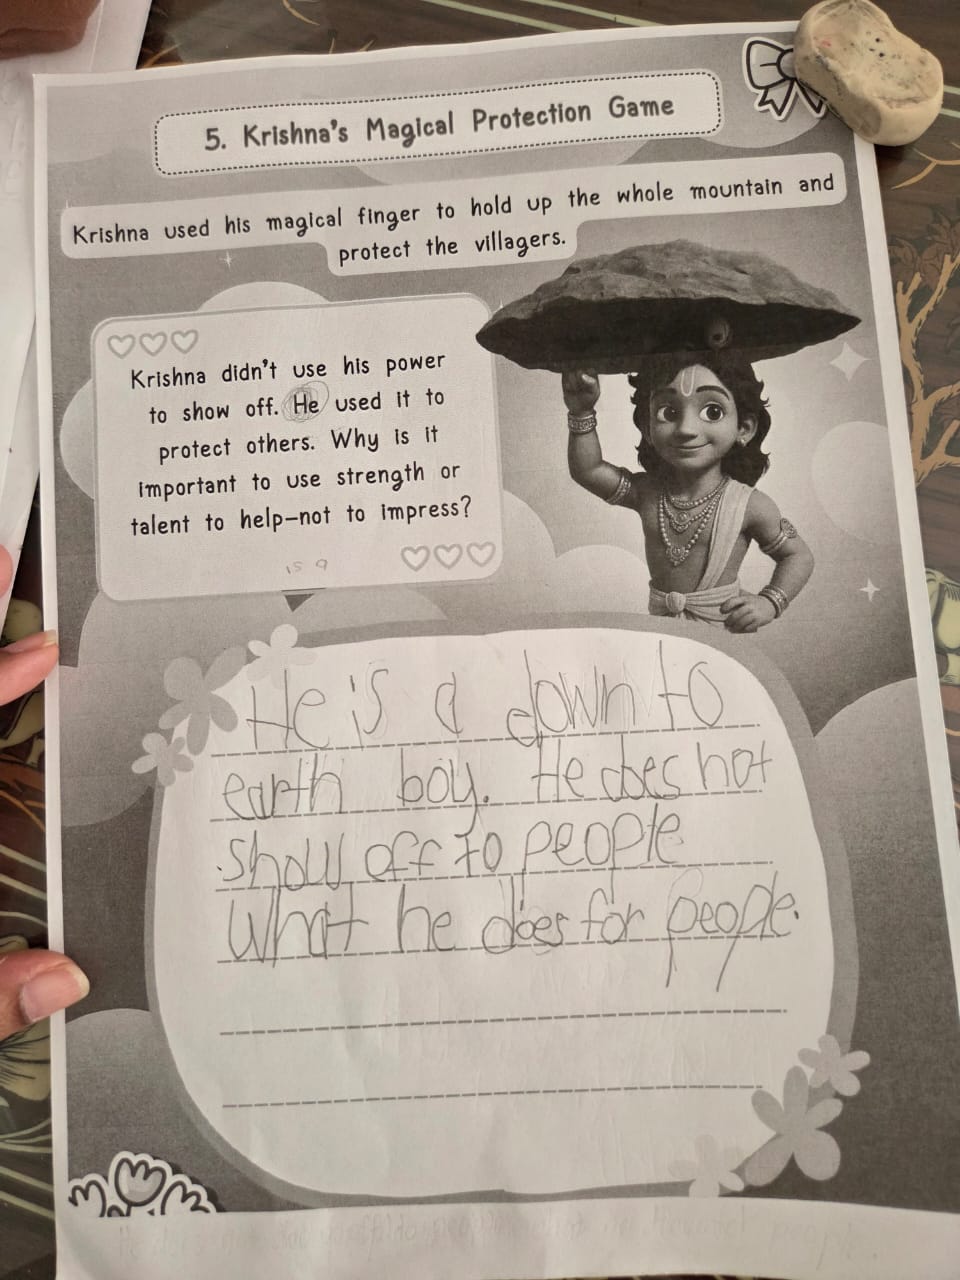 5. Krishna's Magical Protection Game
Krishna used his magical finger to hold up the whole mountain and
protect the villagers.
Krishna didn't use his power
to show off. He used it to
protect others. Why is it
important to use strength or
talent to help—not to impress?
is a
He is a down to
earth boy. He does not
show off to people
what he does for people.